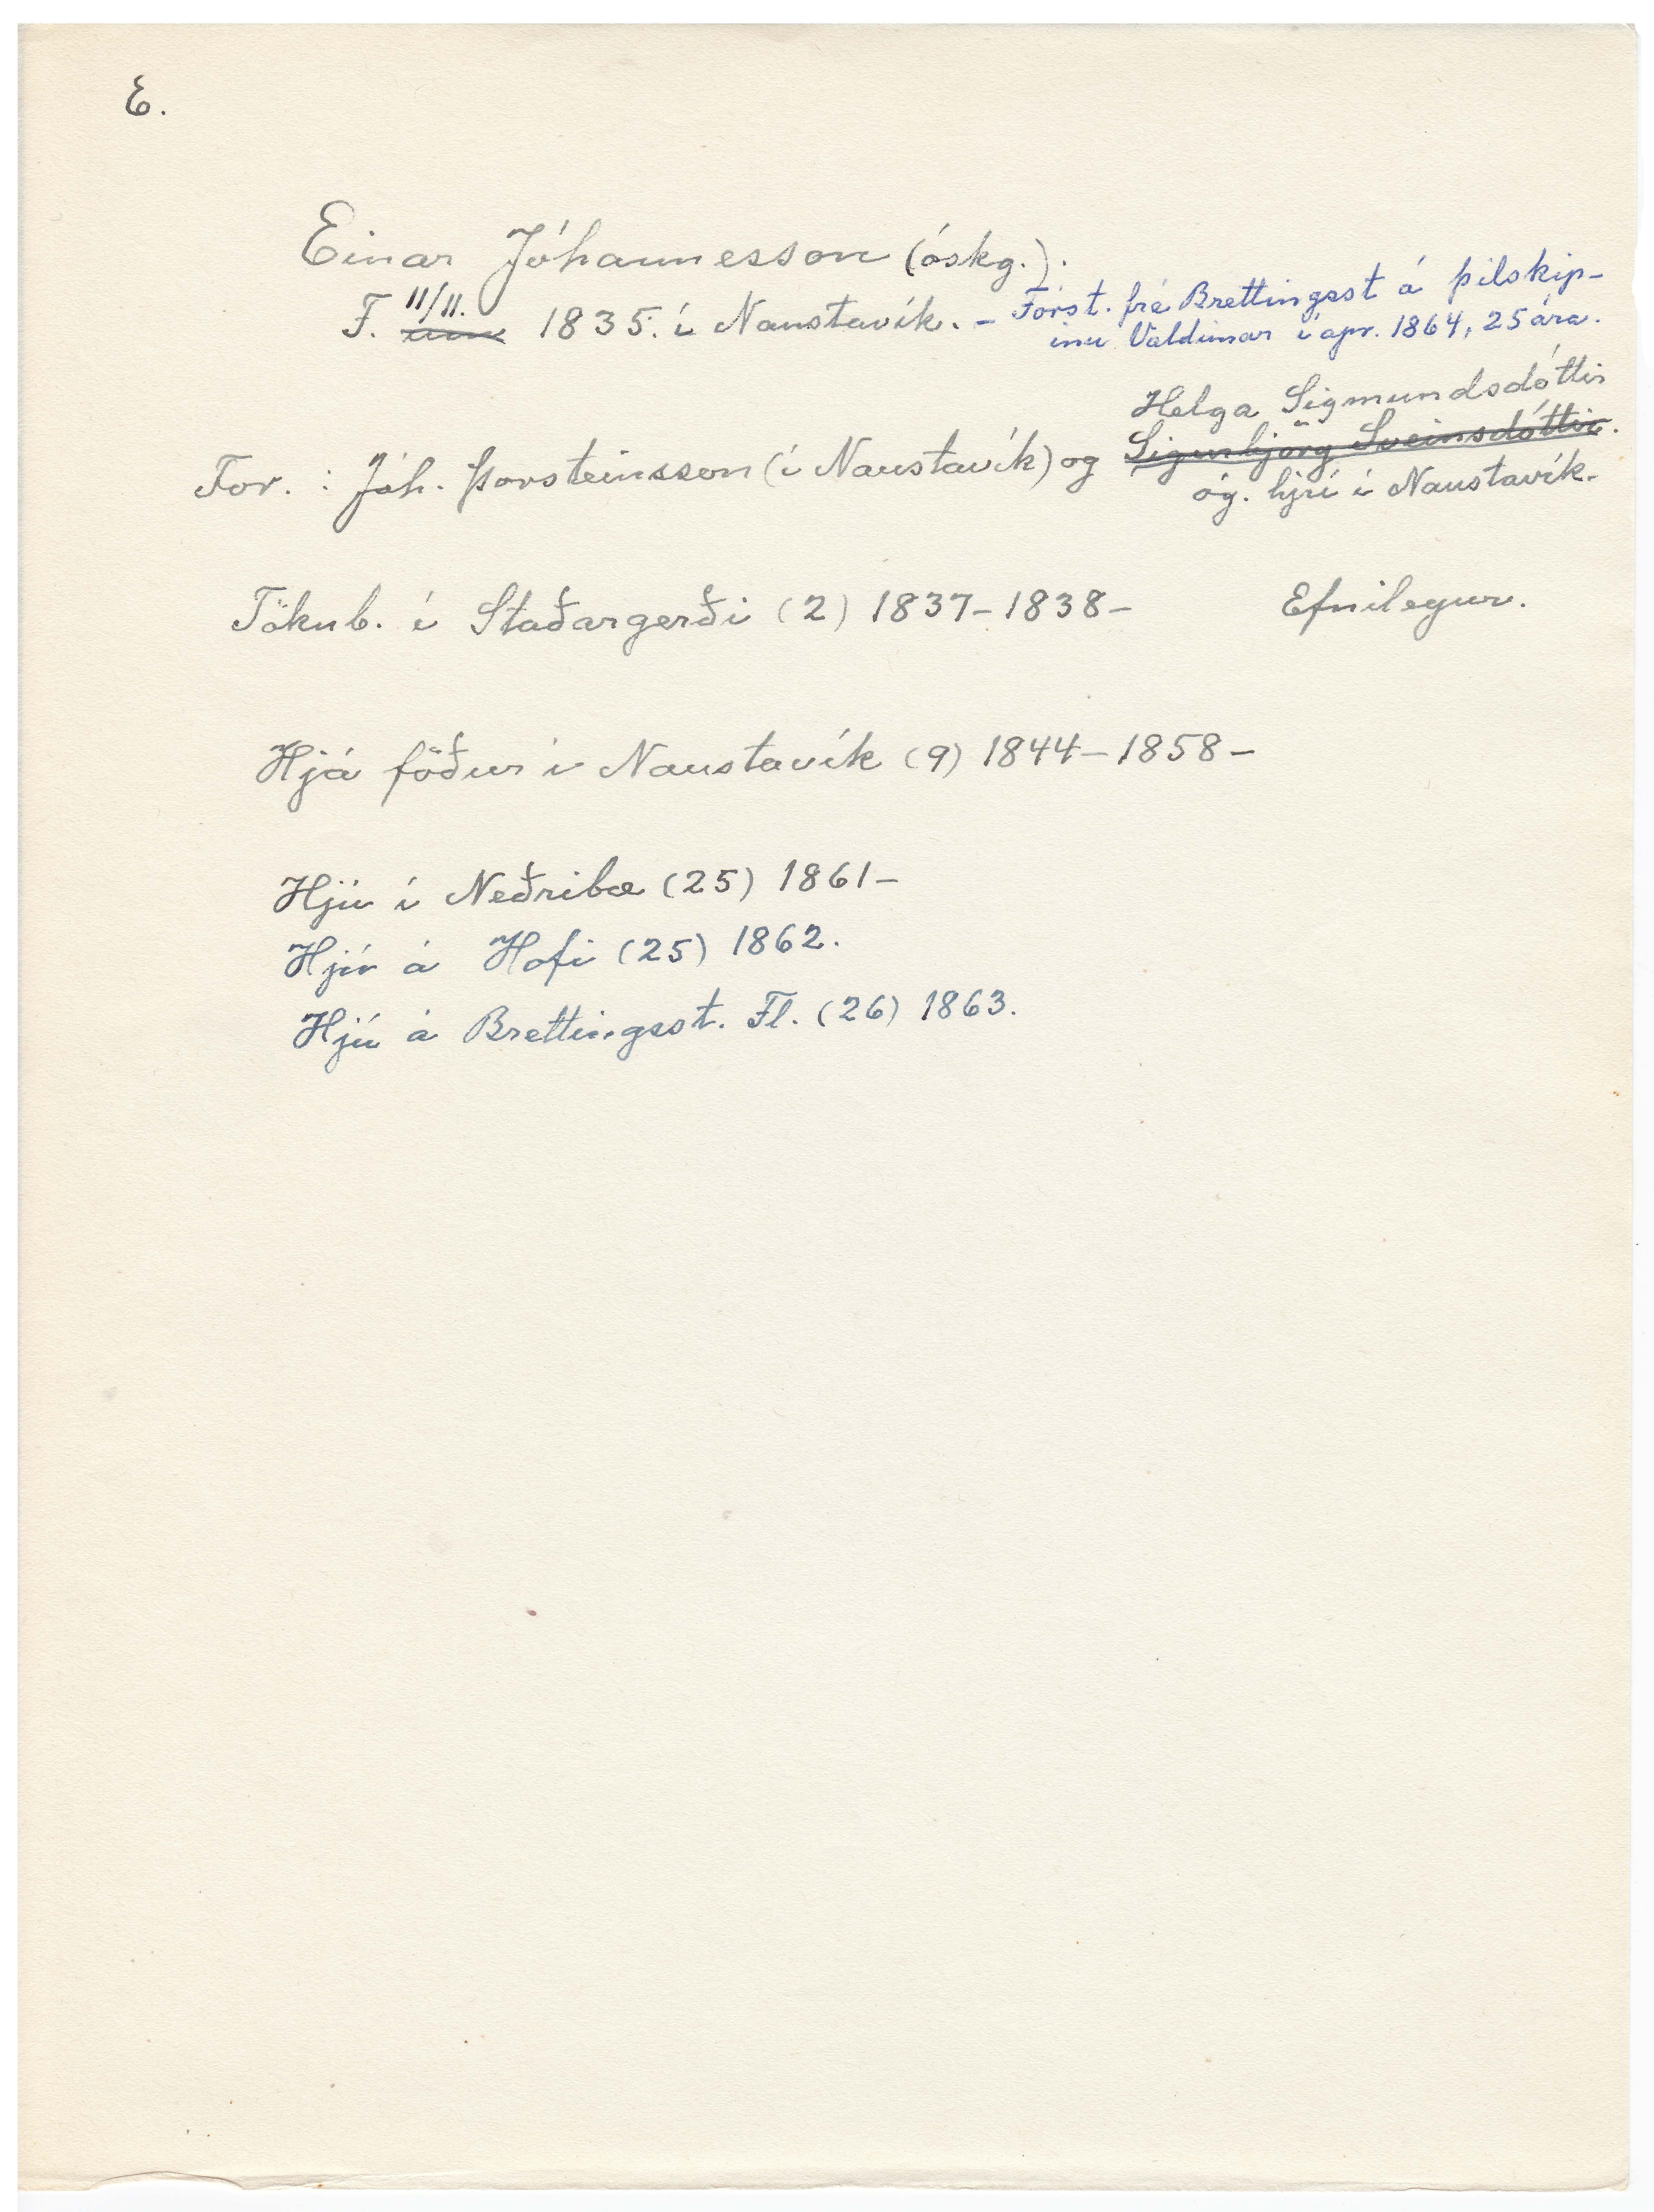 E.
Einar Jóhannesson (óskg.).
F. 11/11. 1835. í Naustavík. - Fórst. frá Brettingsst á þilskip-
inu Valdimar í apr. 1864, 25 ára.
Helga Sigmundsdóttir
For. : Jóh. Þorsteinsson (í Naustavík) og Sigurbjörg Sveinsdóttir.
óg. hjú í Naustavík.
Tökub. í Staðargerði (2) 1837-1838- Efnilegur.
Hjá föður í Naustavík (9) 1844-1858-
Hjú í Neðribæ (25) 1861-
Hjú á Hofi (25) 1862.
Hjú á Brettingsst. Fl. (26) 1863.